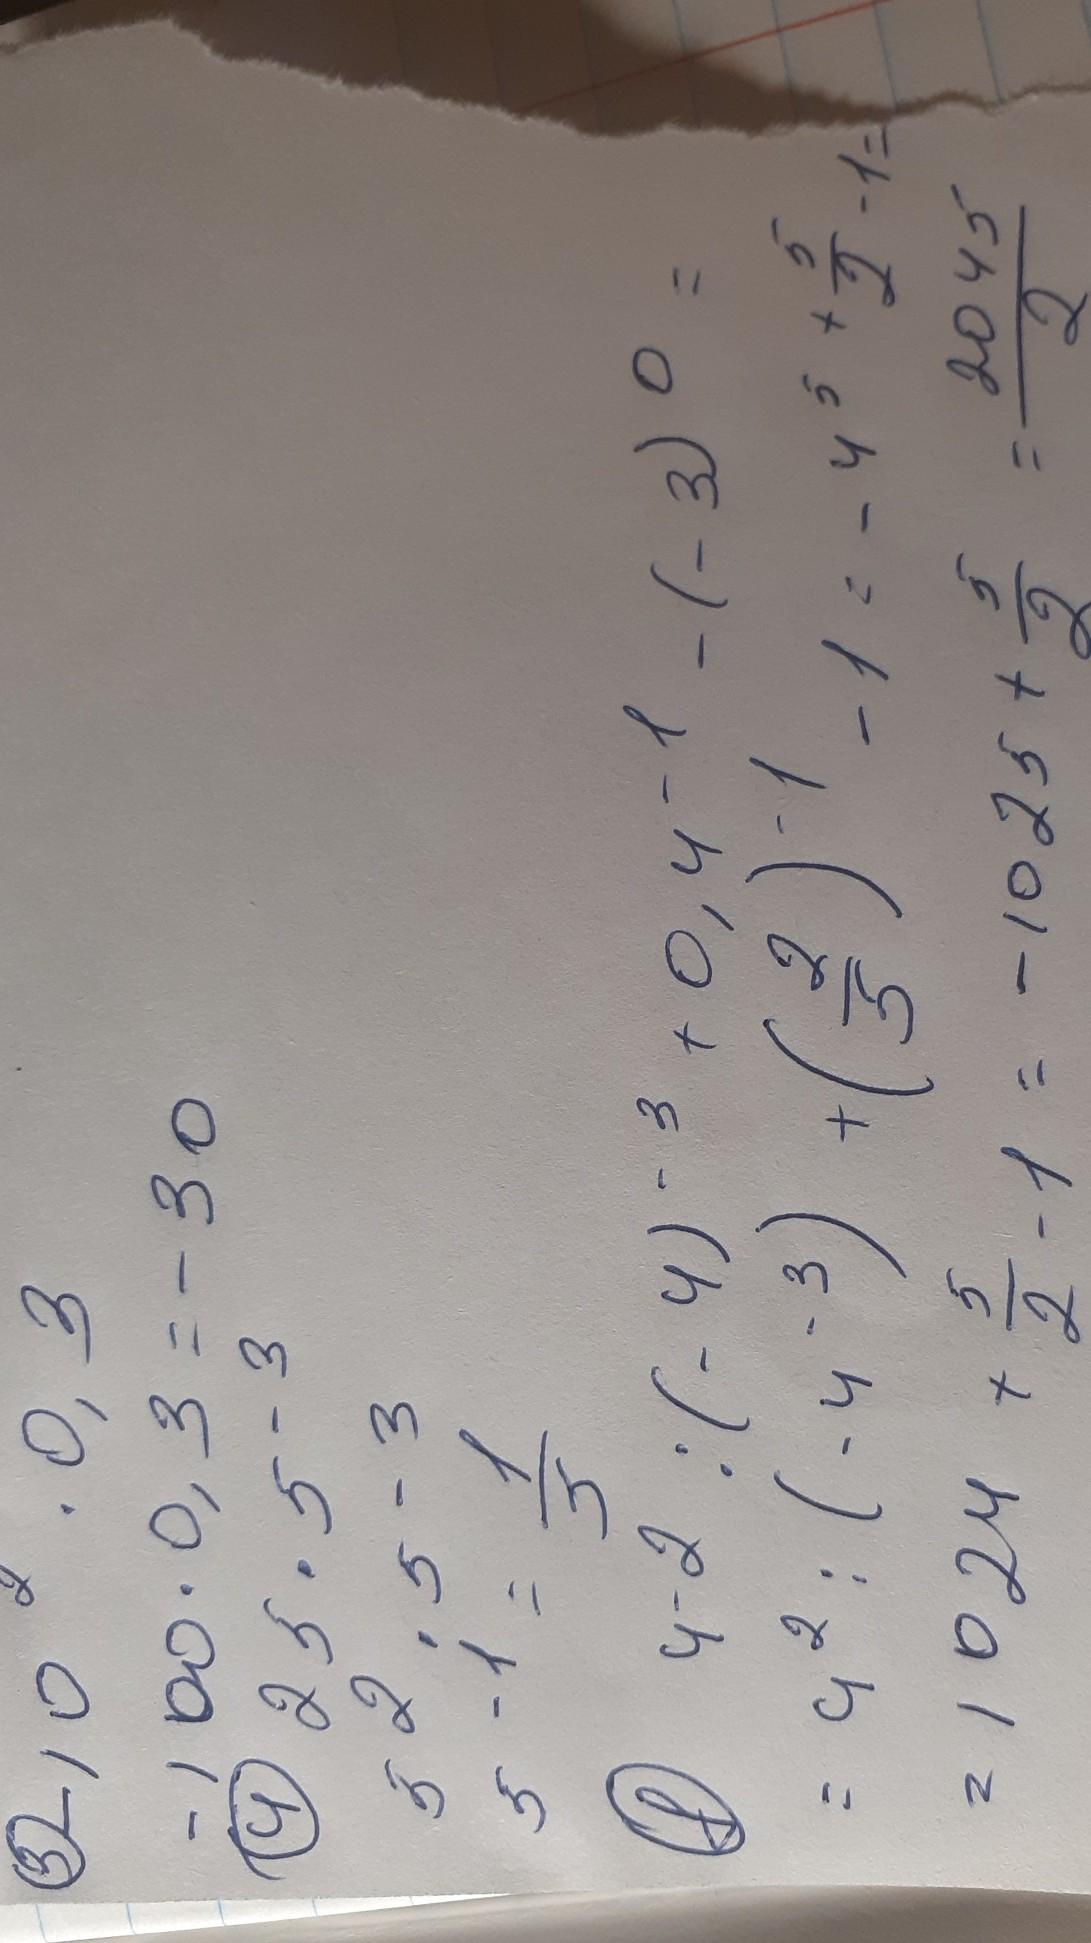 ③ -10² · 0,3
-100 · 0,3 = -30
④ 25 · 5 - 3
5 2 · 5 - 3
5 - 1 = 1/5
4 - 2 : (-4) - 3 + 0,4 - 1 - (-3) 0 =
= 4² : (-4 - 3) + (2/5) - 1 - 1 = - 4⁵ + 5/2 - 1 =
= 1024 + 5/2 - 1 = - 1025 + 5/2 = 2045/2